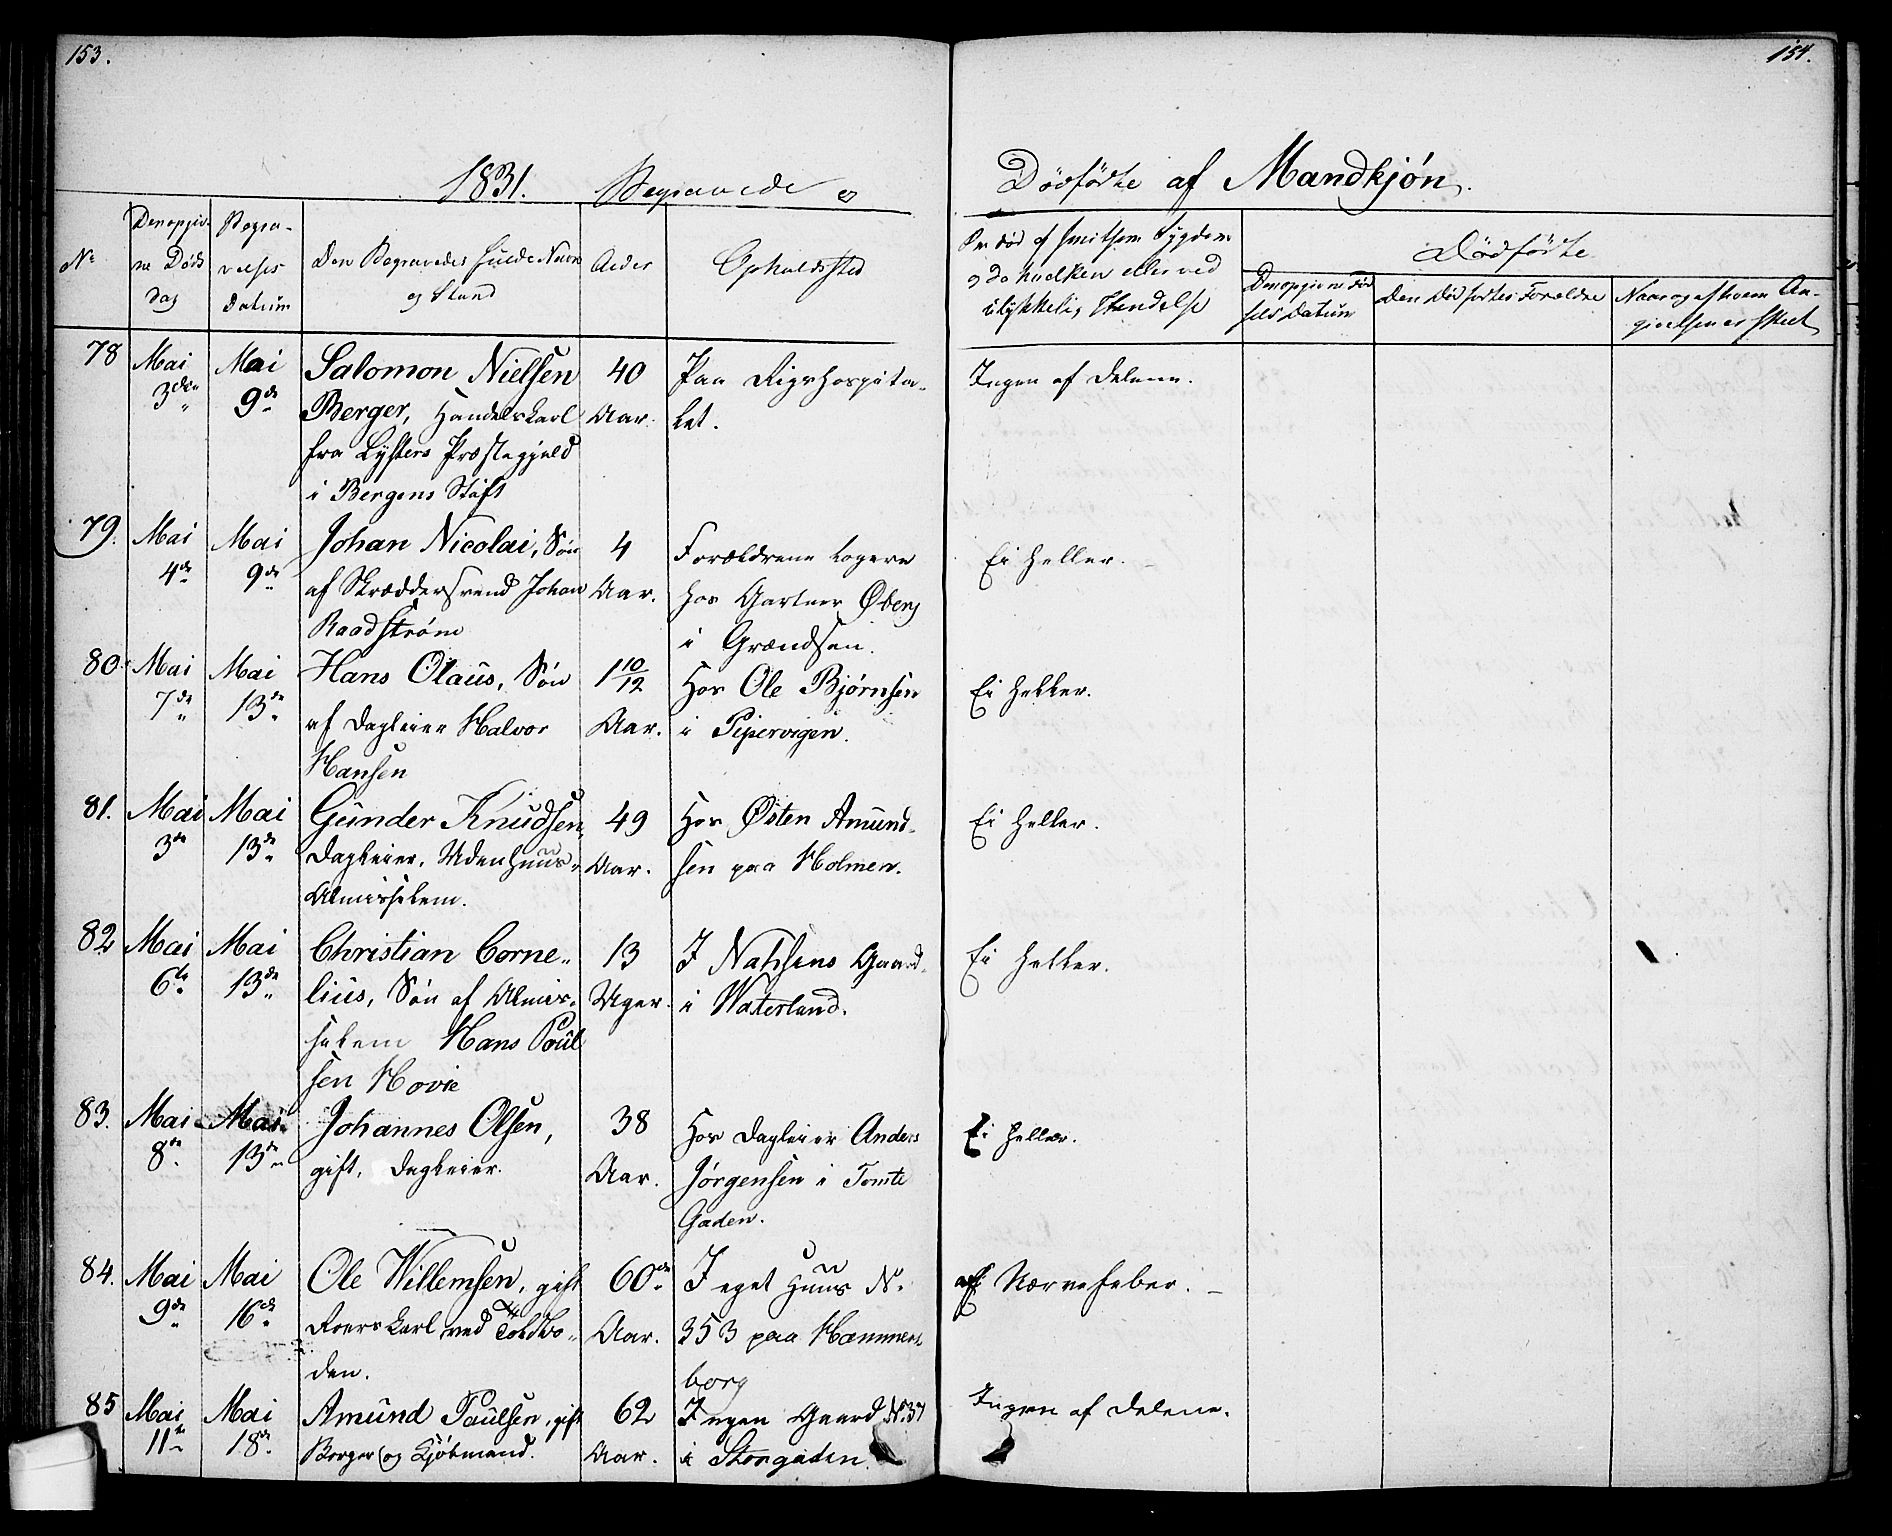 153.
154.
1831. Begravede o
Dödfödte af Mandkjøn.
No
Den opgiv-
ne Döds
dag
Begra-
velses
Datum
Den Begravedes fulde Navn
og Stand
Alder
Opholdssted
Om död af smitsom Sygdom
og da hvilken eller ved
ulykkelig Hendelse
Dödfödte
Den opgivne Föd
sels Datum
Den Död födtes Forældre
Naar og af hvem An-
givelsen er skeet
78
Mai
3die
Mai
9de
Salomon Nielsen
Berger, Handelskarl
fra Lysters Præstegjeld
i Bergens Stift
40
Aar.
Paa Rigshospita-
let.
Ingen af Delene.
79.
Mai
4de
Mai
9de
Johan Nicolai, Søn
af Skræddersvend Johan
Raadstrøm
4
Aar.
Forældrene logere
hos Gartner Øberg
i Grændsen.
Ei heller.
80.
Mai
7de
Mai
13de
Hans Olaus, Søn
af Dagleier Halvor
Hansen
1 10/12
Aar.
Hos Ole Bjørnsen
i Pipervigen.
Ei heller.
81.
Mai
3die
Mai
13de
Gunder Knudsen
Dagleier, Udenhuus-
Almisselem.
49
Aar.
Hos Østen Amund-
sen paa Holmen.
Ei heller.
82
Mai
6te
Mai
13de
Christian Corne-
lius, Søn af Almis-
selem Hans Poul
sen Hovie
13
Uger.
I Gaard
i Waterland.
Ei heller.
83.
Mai
8de
Mai
13de
Johannes Olsen,
gift, Dagleier.
38
Aar.
Hos Dagleier Anders
Jørgensen i Tomte
Gaden.
Ei heller.
84.
Mai
9de
Mai
16de
Ole Willemsen, gift
Roerskarl ved Toldbo-
den.
60
Aar.
I eget Huus No
353 paa Hammers
borg
af Nervefeber.
85
Mai
11te
Mai
18de
Amund Paulsen, gift
Borger og Kjøbmand.
62
Aar.
I egen Gaard No 37
i Storgaden
Ingen af Delene.